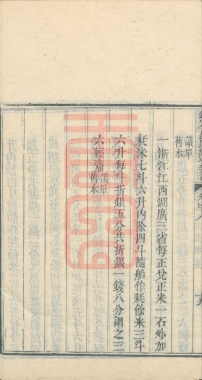 議單
舊本
一浙江江西湖廣三省每正兌正米一石外加
耗米七斗六升內除四斗隨船作耗餘米三斗
六升每斗折銀五分共折銀一錢八分謂之三
六輕齎議單
舊本